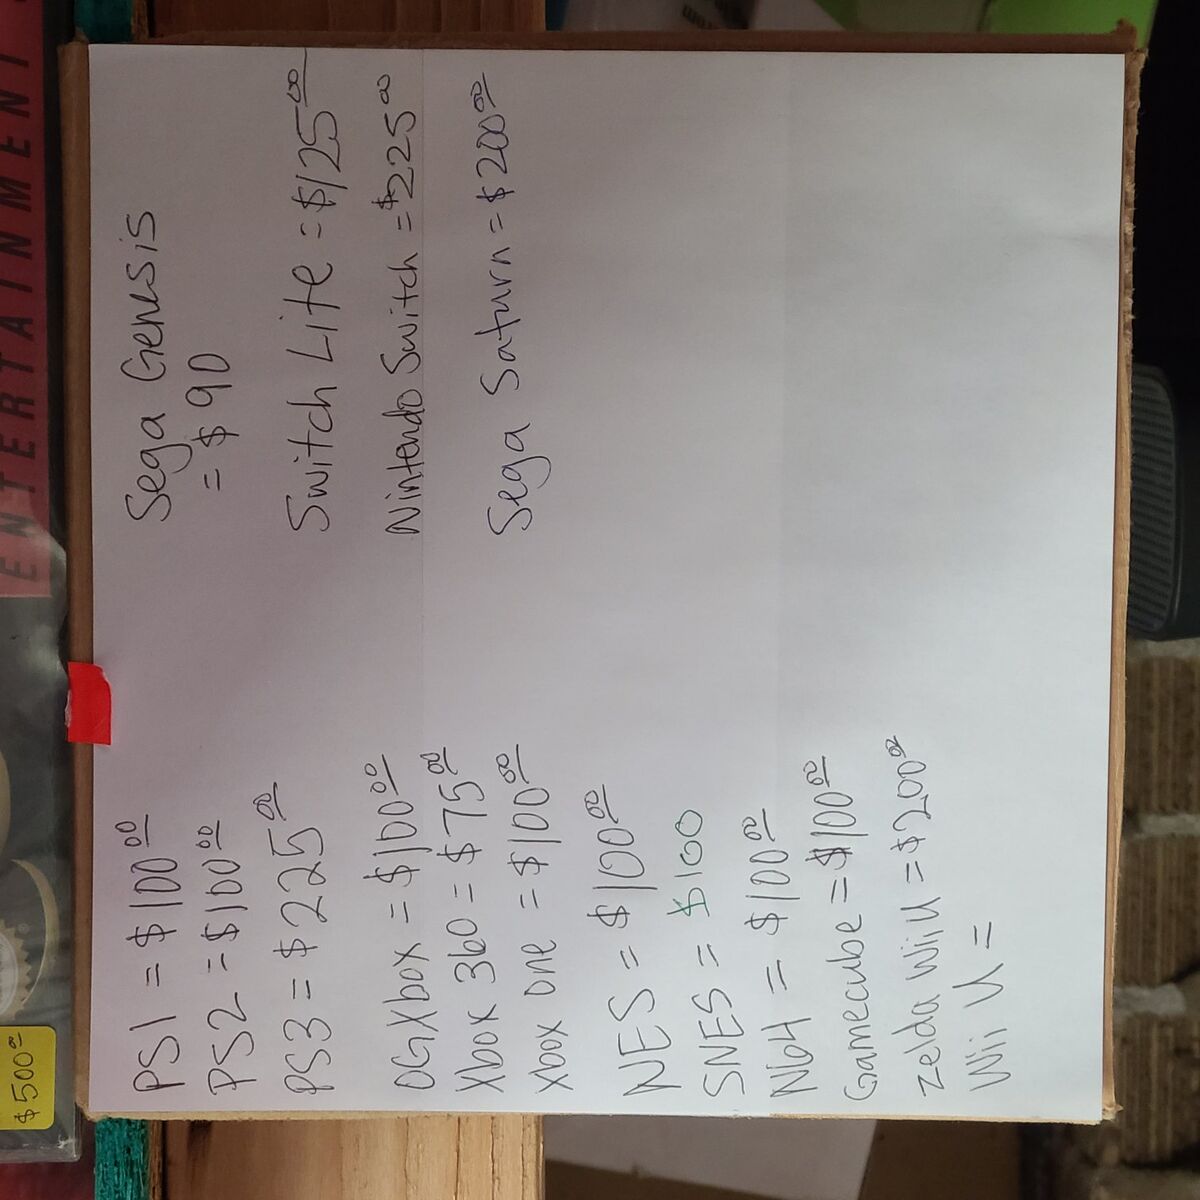 PS1 = $100.00
PS2 = $100.00
PS3 = $225.00
OGXbox = $100.00
Xbox 360 = $75.00
Xbox one = $100.00
NES = $100.00
SNES = $100
N64 = $100.00
Gamecube = $100.00
Zelda Wii U = $200.00
Wii U =
Sega Genesis
= $90
Switch Lite = $125.00
Nintendo Switch = $225.00
Sega Saturn = $200.00
ENTERTAINMENT
$500.00